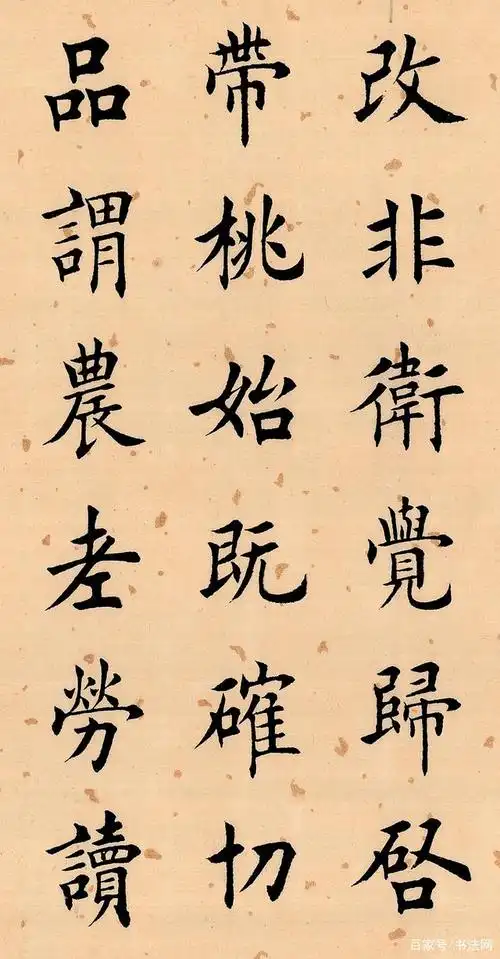 改非衛覺歸啓
帶桃始既確切
品謂農勞讀
百家号/书法网